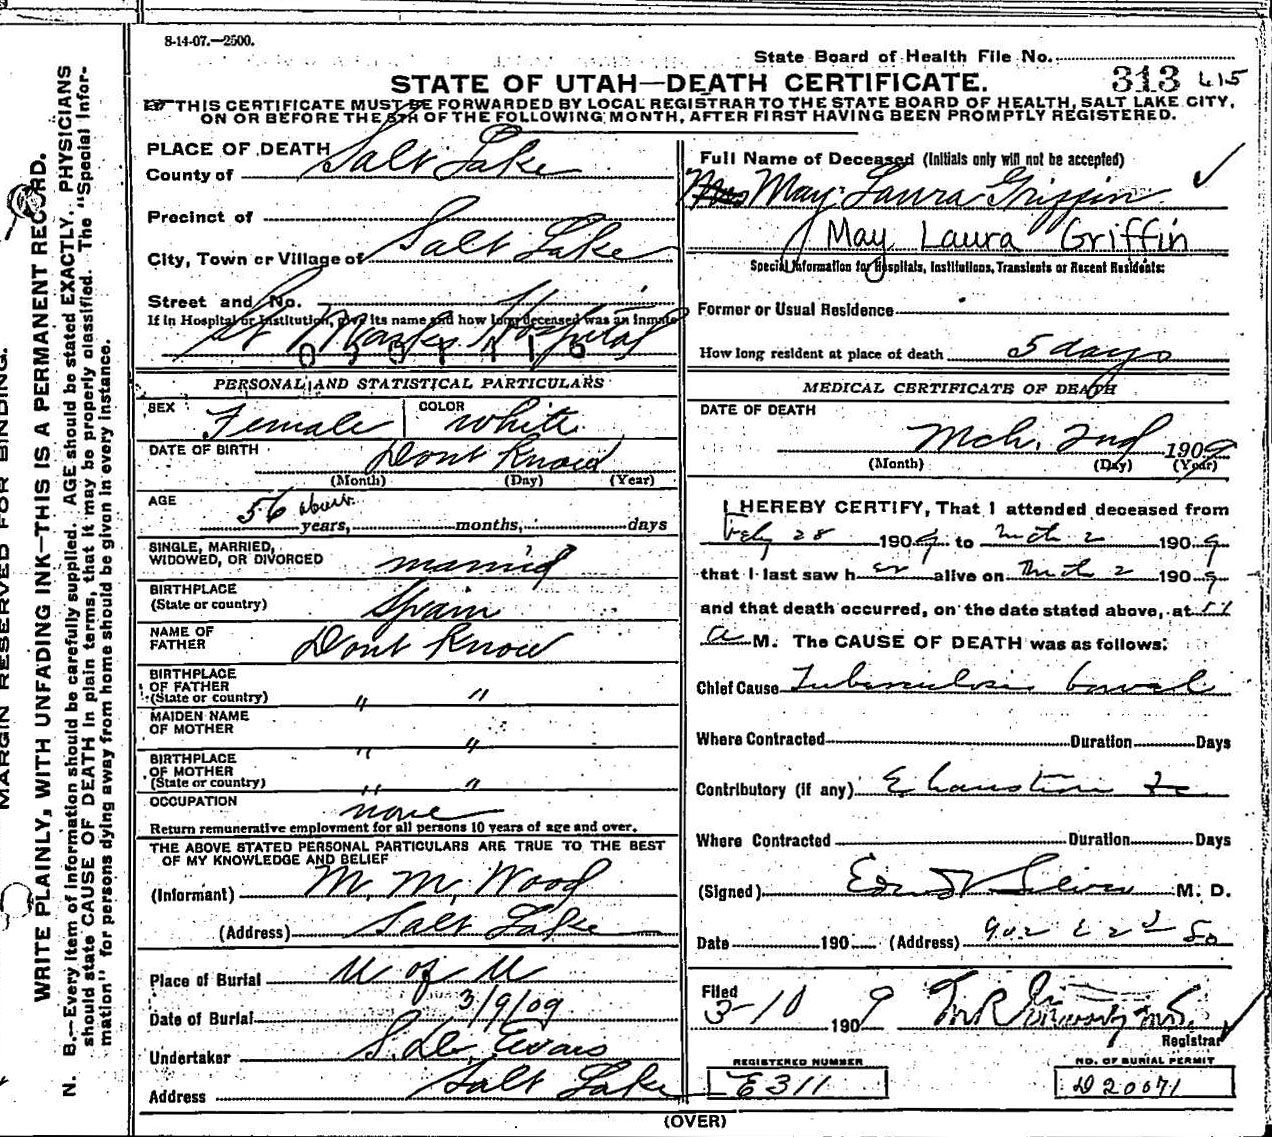 8-14-07.—2500.
State Board of Health File No.
313 415
STATE OF UTAH—DEATH CERTIFICATE.
THIS CERTIFICATE MUST BE FORWARDED BY LOCAL REGISTRAR TO THE STATE BOARD OF HEALTH, SALT LAKE CITY,
ON OR BEFORE THE 5TH OF THE FOLLOWING MONTH, AFTER FIRST HAVING BEEN PROMPTLY REGISTERED.
MARGIN RESERVED FOR BINDING.
WRITE PLAINLY, WITH UNFADING INK—THIS IS A PERMANENT RECORD.
N. B.—Every item of information should be carefully supplied. AGE should be stated EXACTLY. PHYSICIANS
should state CAUSE OF DEATH in plain terms, that it may be properly classified. The "Special Infor-
mation" for persons dying away from home should be given in every instance.
PLACE OF DEATH
County of Salt Lake
Precinct of
City, Town or Village of Salt Lake
Street and No.
If in Hospital or Institution, give its name and how long deceased was an inmate
St Marks Hospital
PERSONAL AND STATISTICAL PARTICULARS
SEX Female COLOR White
DATE OF BIRTH Dont Know
(Month) (Day) (Year)
AGE 56 about years, months, days
SINGLE, MARRIED,
WIDOWED, OR DIVORCED married
BIRTHPLACE
(State or country) Spain
NAME OF
FATHER Dont Know
BIRTHPLACE
OF FATHER
(State or country) " "
MAIDEN NAME
OF MOTHER " "
BIRTHPLACE
OF MOTHER
(State or country) " "
OCCUPATION none
Return remunerative employment for all persons 10 years of age and over.
THE ABOVE STATED PERSONAL PARTICULARS ARE TRUE TO THE BEST
OF MY KNOWLEDGE AND BELIEF
(Informant) M. M. Wood
(Address) Salt Lake
Place of Burial U of U
Date of Burial 3/9/09
Undertaker S. D. Evans
Address Salt Lake
Full Name of Deceased (Initials only will not be accepted)
Mrs May Laura Griffin
May Laura Griffin
Special Information for Hospitals, Institutions, Transients or Recent Residents:
Former or Usual Residence
How long resident at place of death 5 days
MEDICAL CERTIFICATE OF DEATH
DATE OF DEATH
Mch. 2nd 1909
(Month) (Day) (Year)
I HEREBY CERTIFY, That I attended deceased from
Feby 28 1909 to Mch 2 1909
that I last saw her alive on Mch 2 1909
and that death occurred, on the date stated above, at 11
a M. The CAUSE OF DEATH was as follows:
Chief Cause Tuberculosis bowel
Where Contracted Duration Days
Contributory (if any) Exhaustion
Where Contracted Duration Days
(Signed) M. D.
Date 190 (Address) 902 E 2nd So
Filed
3-10 1909
Registrar
REGISTERED NUMBER
E311
NO. OF BURIAL PERMIT
D20071
(OVER)